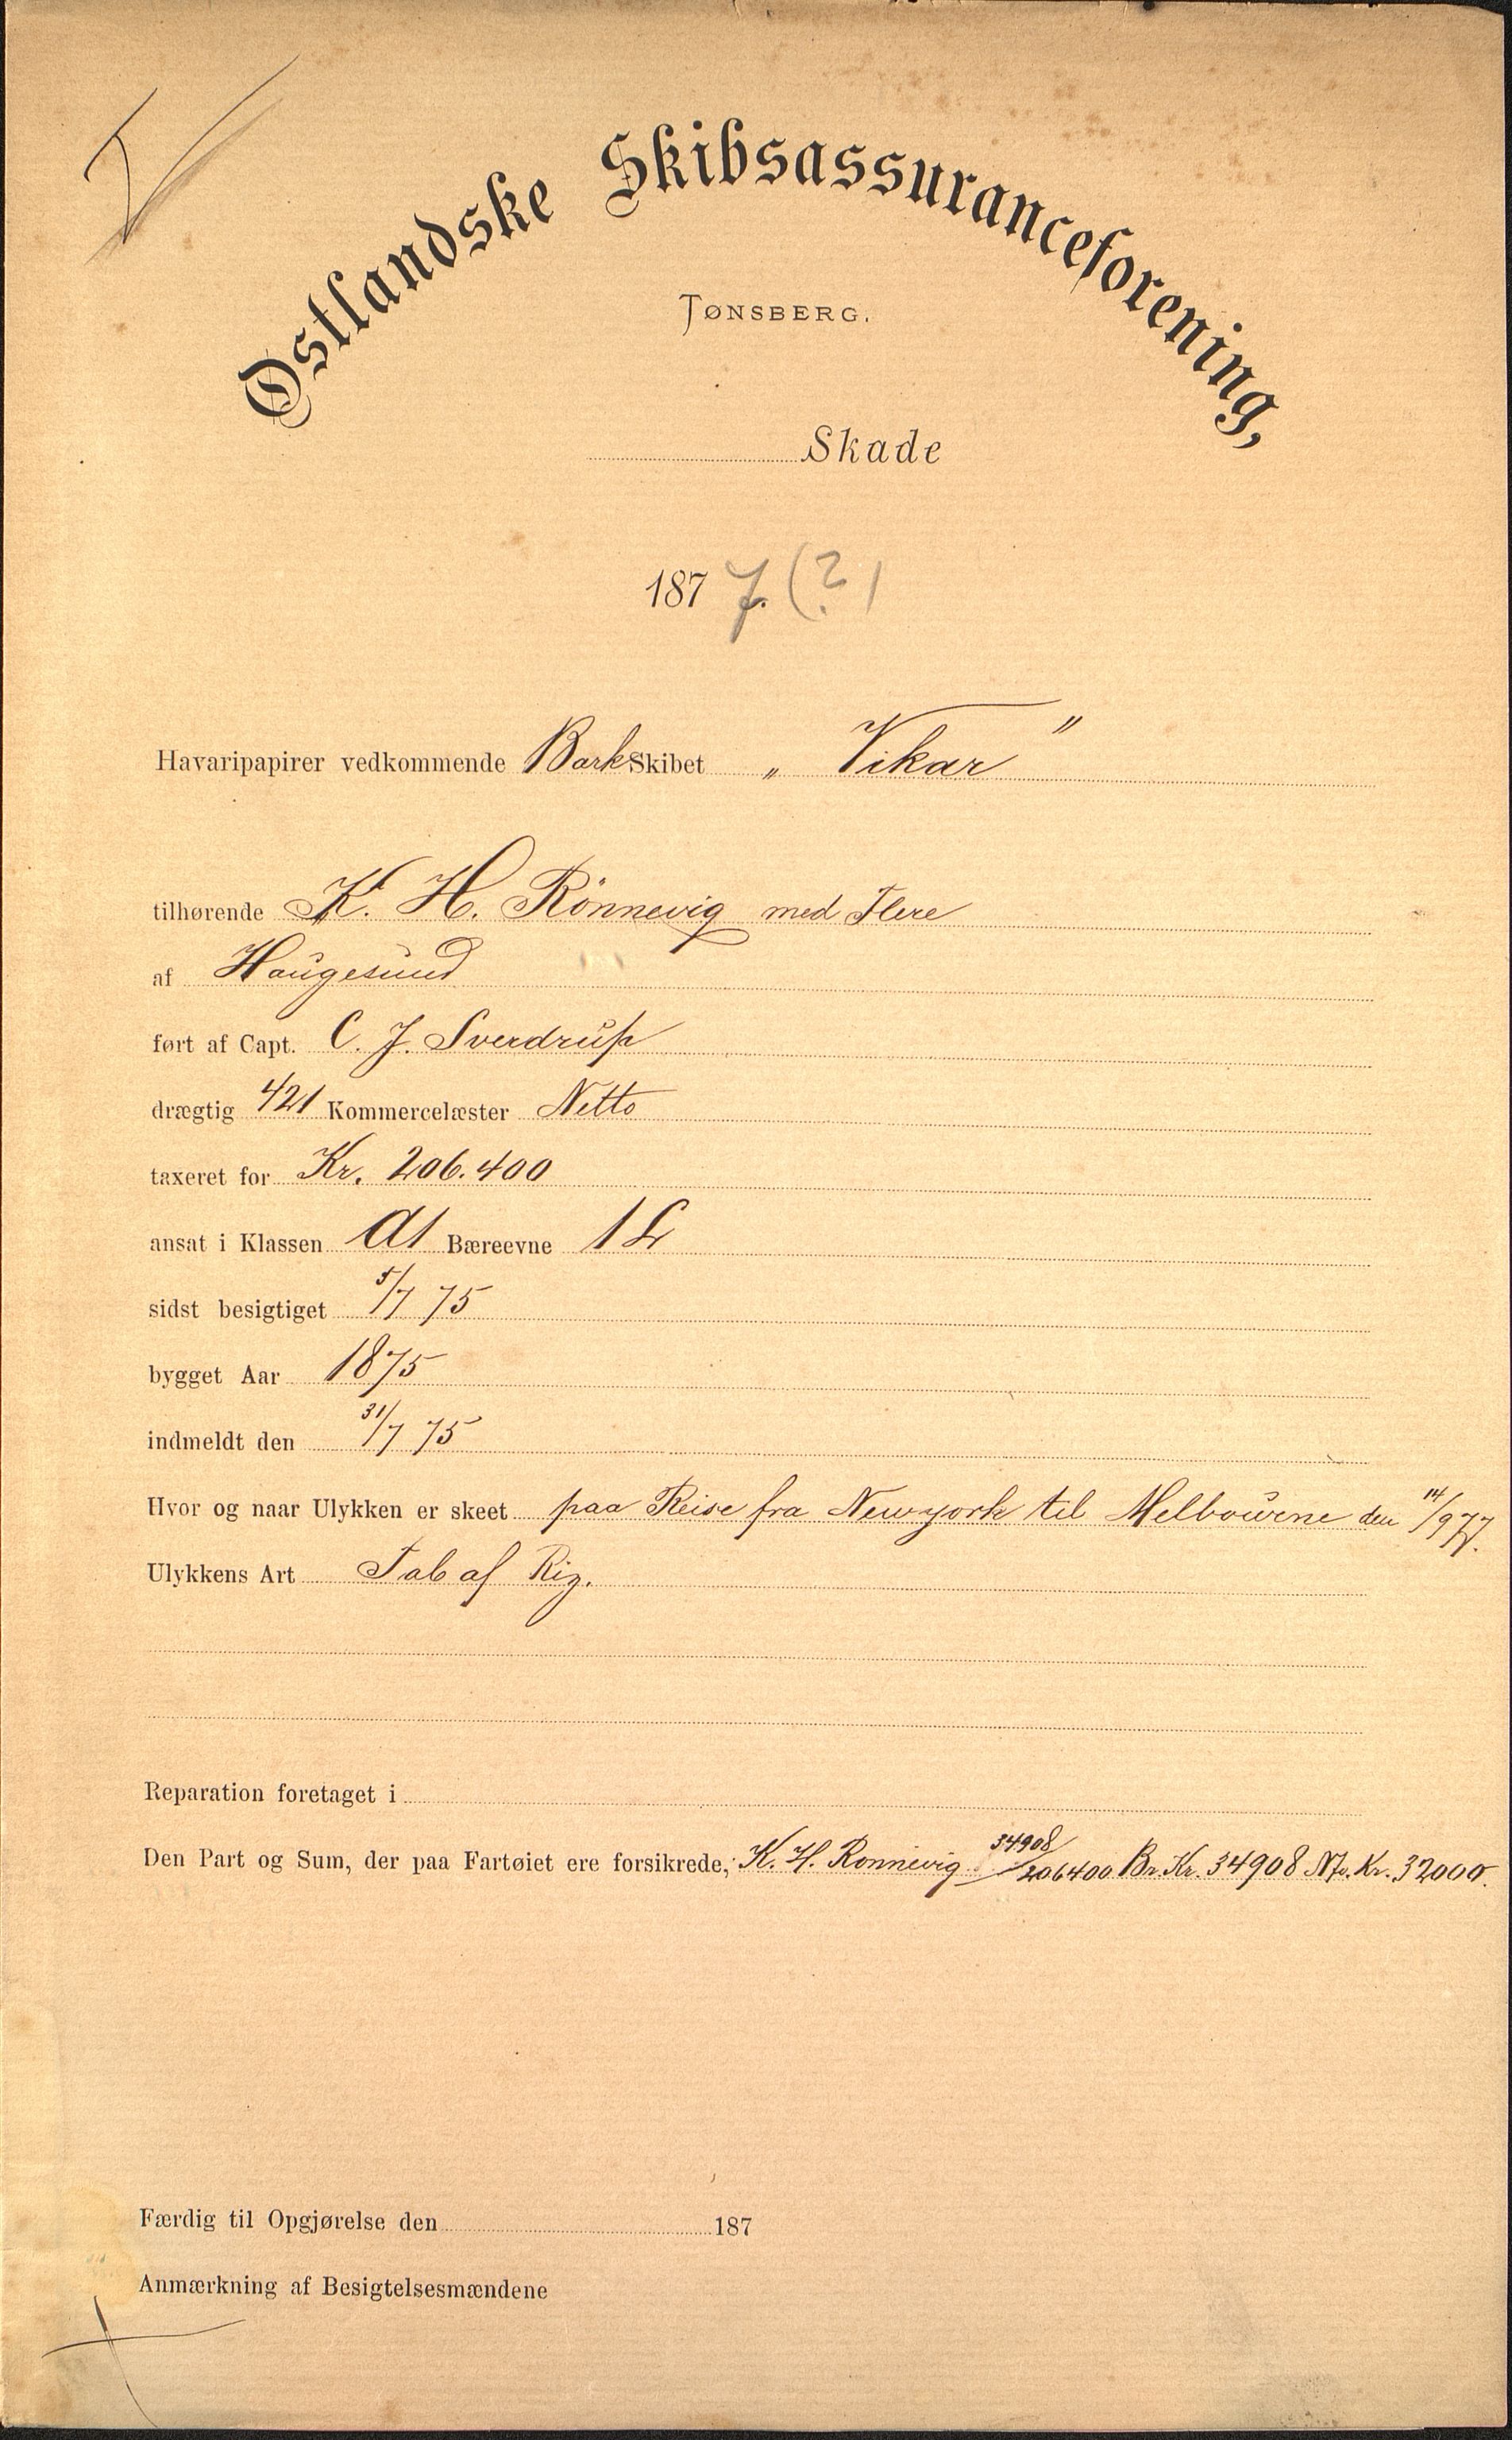 Østlandske Skibsassuranceforening,
TØNSBERG.
Skade
1877. (?)
Havaripapirer vedkommende Bark Skibet „ Vikar "
tilhørende K. H. Rönnevig med Flere
af Haugesund
ført af Capt. C. J. Sverdrup
drægtig 421 Kommercelæster Netto
taxeret for Kr. 206.400
ansat i Klassen A1 Bæreevne 1 L
sidst besigtiget 5/7 75
bygget Aar 1875
indmeldt den 31/7 75
Hvor og naar Ulykken er skeet paa Reise fra Newyork til Melbourne den 14/9 77.
Ulykkens Art Tab af Rig.
Reparation foretaget i
Den Part og Sum, der paa Fartøiet ere forsikrede, K. H. Ronnevig 34908/206400 Br. Kr. 34908 Nto. Kr. 32000.
Færdig til Opgjørelse den 187
Anmærkning af Besigtelsesmændene